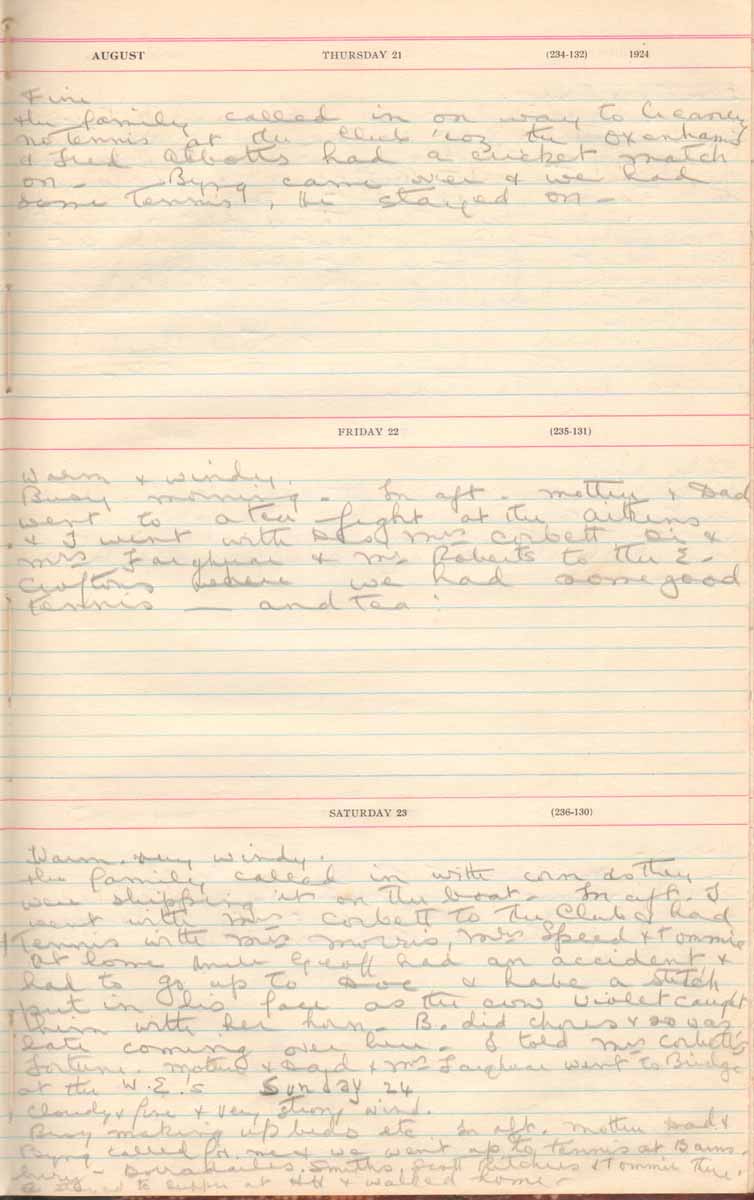 AUGUST THURSDAY 21 (234-132) 1924
Fine
the family called in on way to Creaney
no tennis at the Club 'coz the Oxenhams
& Fred Abbotts had a cricket match
on - Byng came over & we had
some tennis, He stayed on -
FRIDAY 22 (235-131)
Warm & windy.
Busy morning - In aft. mother & Dad
went to a tea fight at the Aitkens
& I went with Doc, Mrs Corbett &
Mrs Farquhar & Mr Roberts to the E.
Croftons where we had some good
tennis — and tea!
SATURDAY 23 (236-130)
Warm. very windy.
the family called in with corn as they
were shipping it on the boat - In aft. I
went with Mrs Corbett to the Club & had
tennis with Mrs Morris, Mrs Speed & Tommie
At home Uncle Geoff had an accident &
had to go up to Doc & have a stitch
put in his face as the cow Violet caught
him with her horn - B. did chores & so was
late coming over here - I told Mrs Corbett's
fortune. Mother & Dad & Mrs Farquhar went to Bridge
at the W.E.'s Sunday 24
Cloudy & fine & very strong wind.
Busy making up beds etc In aft. mother Dad &
Byng called for me & we went up to tennis at Barns-
bury - Borradailes, Smiths, Scott Ritchies & Tommie there.
to supper at HH & walked home -